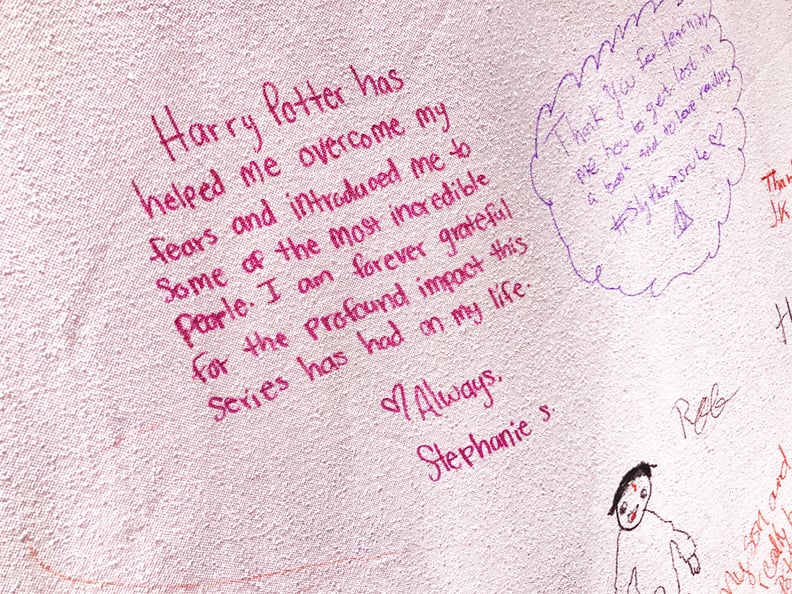 Harry Potter has
helped me overcome my
fears and introduced me to
some of the most incredible
people. I am forever grateful
for the profound impact this
series has had on my life.
♡ Always,
Stephanie S.
Thank you for teaching
me how to get lost in
a book and to love reading
#Slytherinsrule ♡
J.K
my son and
really